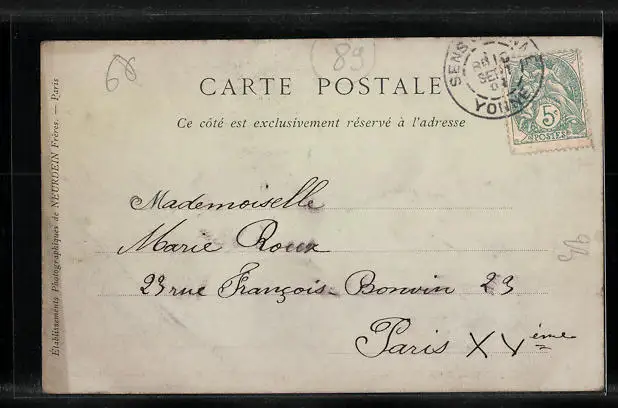 CARTE POSTALE
Ce côté est exclusivement réservé à l'adresse
SENS
SEPT
YONNE
5c
POSTES
89
Mademoiselle
Marie Roux
23 rue François-Bonvin 23
Paris XVème
Établissements Photographiques de NEURDEIN Frères. — Paris